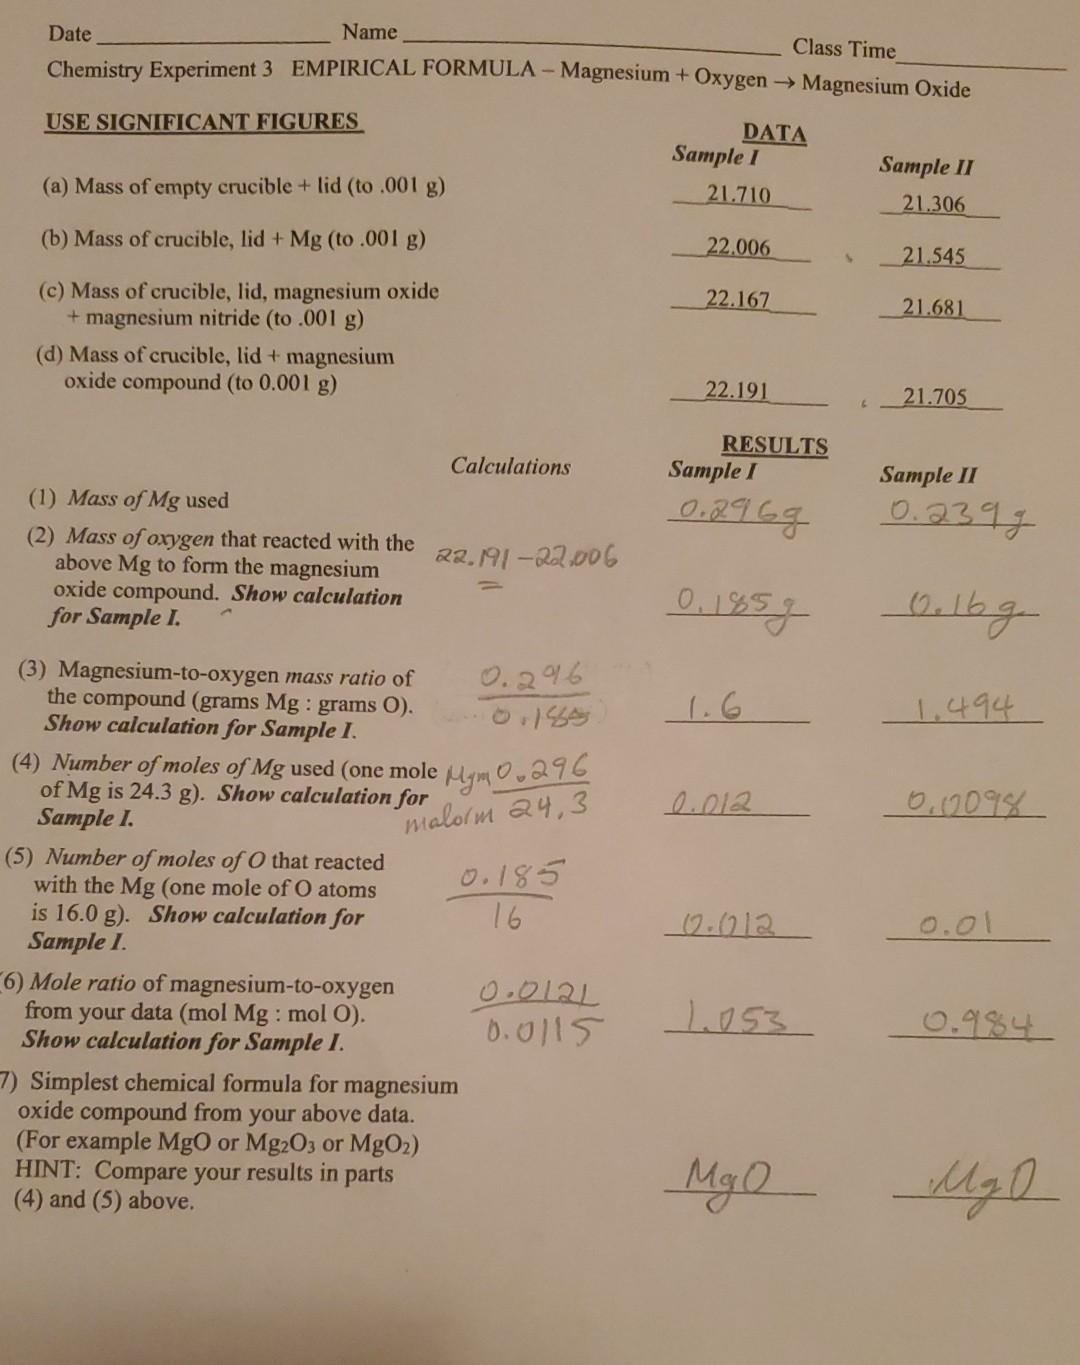 Date Name Class Time
Chemistry Experiment 3 EMPIRICAL FORMULA – Magnesium + Oxygen → Magnesium Oxide
USE SIGNIFICANT FIGURES
DATA
Sample I Sample II
(a) Mass of empty crucible + lid (to .001 g) 21.710 21.306
(b) Mass of crucible, lid + Mg (to .001 g) 22.006 21.545
(c) Mass of crucible, lid, magnesium oxide 22.167 21.681
+ magnesium nitride (to .001 g)
(d) Mass of crucible, lid + magnesium
oxide compound (to 0.001 g) 22.191 21.705
RESULTS
Calculations Sample I Sample II
(1) Mass of Mg used 0.296g 0.239g
(2) Mass of oxygen that reacted with the 22.191 – 22.006
above Mg to form the magnesium =
oxide compound. Show calculation 0.185g 0.16g
for Sample I.
(3) Magnesium-to-oxygen mass ratio of 0.296
the compound (grams Mg : grams O). 0.185 1.6 1.494
Show calculation for Sample I.
(4) Number of moles of Mg used (one mole 0.296
of Mg is 24.3 g). Show calculation for 24.3 0.012 0.0098
Sample I.
(5) Number of moles of O that reacted 0.185
with the Mg (one mole of O atoms
is 16.0 g). Show calculation for 16 0.012 0.01
Sample I.
6) Mole ratio of magnesium-to-oxygen 0.0121
from your data (mol Mg : mol O). 0.0115 1.053 0.984
Show calculation for Sample I.
7) Simplest chemical formula for magnesium
oxide compound from your above data.
(For example MgO or Mg₂O₃ or MgO₂)
HINT: Compare your results in parts MgO MgO
(4) and (5) above.